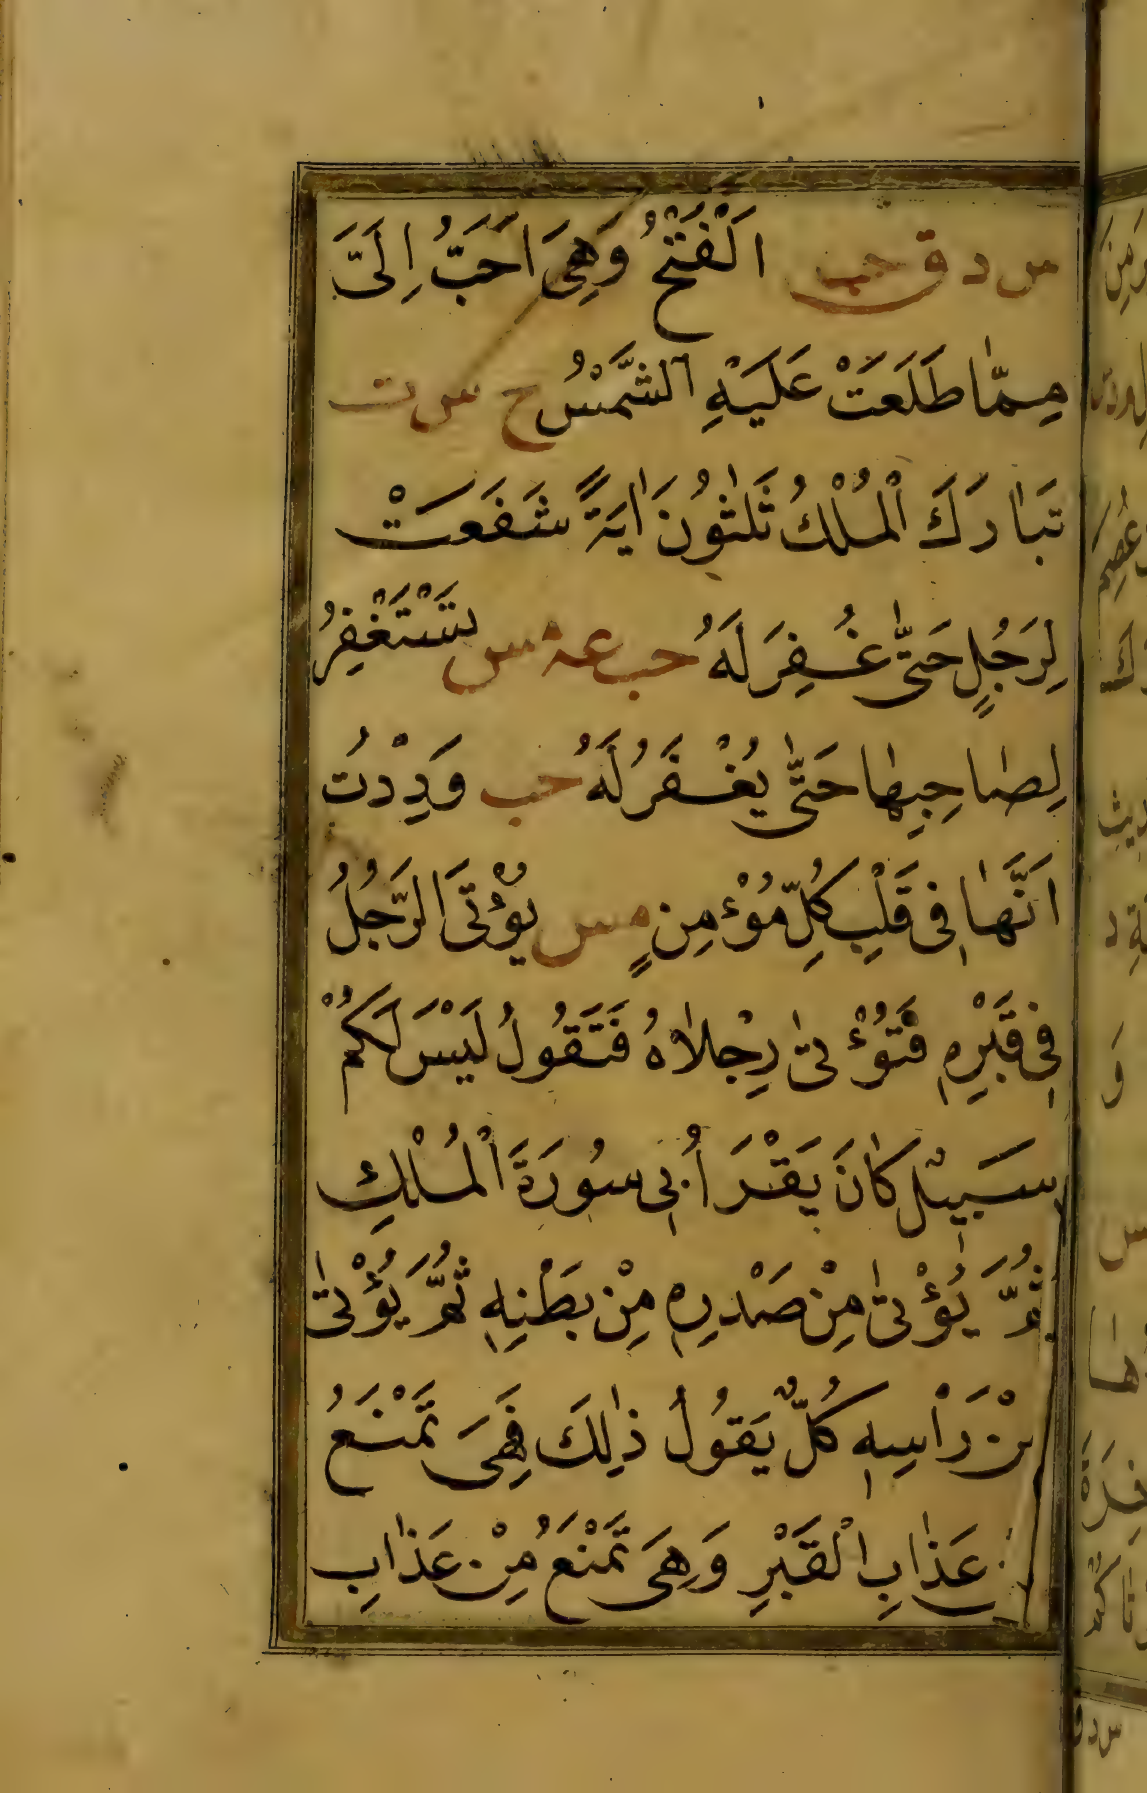 س د ق حب اَلْفَتْحُ وَهِىَ اَحَبُّ اِلَىَّ
مِمّٰا طَلَعَتْ عَلَيْهِ الشَّمْسُ خ س ت
تَبٰارَكَ الْمُلْكُ ثَلٰثُونَ اٰيَةً شَفَعَتْ
لِرَجُلٍ حَتّٰى غُفِرَ لَهُ حب عة مس تَسْتَغْفِرُ
لِصٰاحِبِهٰا حَتّٰى يُغْفَرُ لَهُ حب وَدِدْتُ
اَنَّهٰا فِى قَلْبِ كُلِّ مُؤْمِنٍ مس يُؤْتَى الرَّجُلُ
فِى قَبْرِهِ فَتُؤْتٰى رِجْلَاهُ فَتَقُولُ لَيْسَ لَكُمْ
سَبِيلٌ كٰانَ يَقْرَأُ بِى سُورَةَ الْمُلْكِ
ثُمَّ يُؤْتٰى مِنْ صَدْرِهِ مِنْ بَطْنِهِ ثُمَّ يُؤْتٰى
مِنْ رَاْسِهِ كُلٌّ يَقُولُ ذٰلِكَ فَهِىَ تَمْنَعُ
عَذٰابِ الْقَبْرِ وَهِىَ تَمْنَعُ مِنْ عَذٰابِ